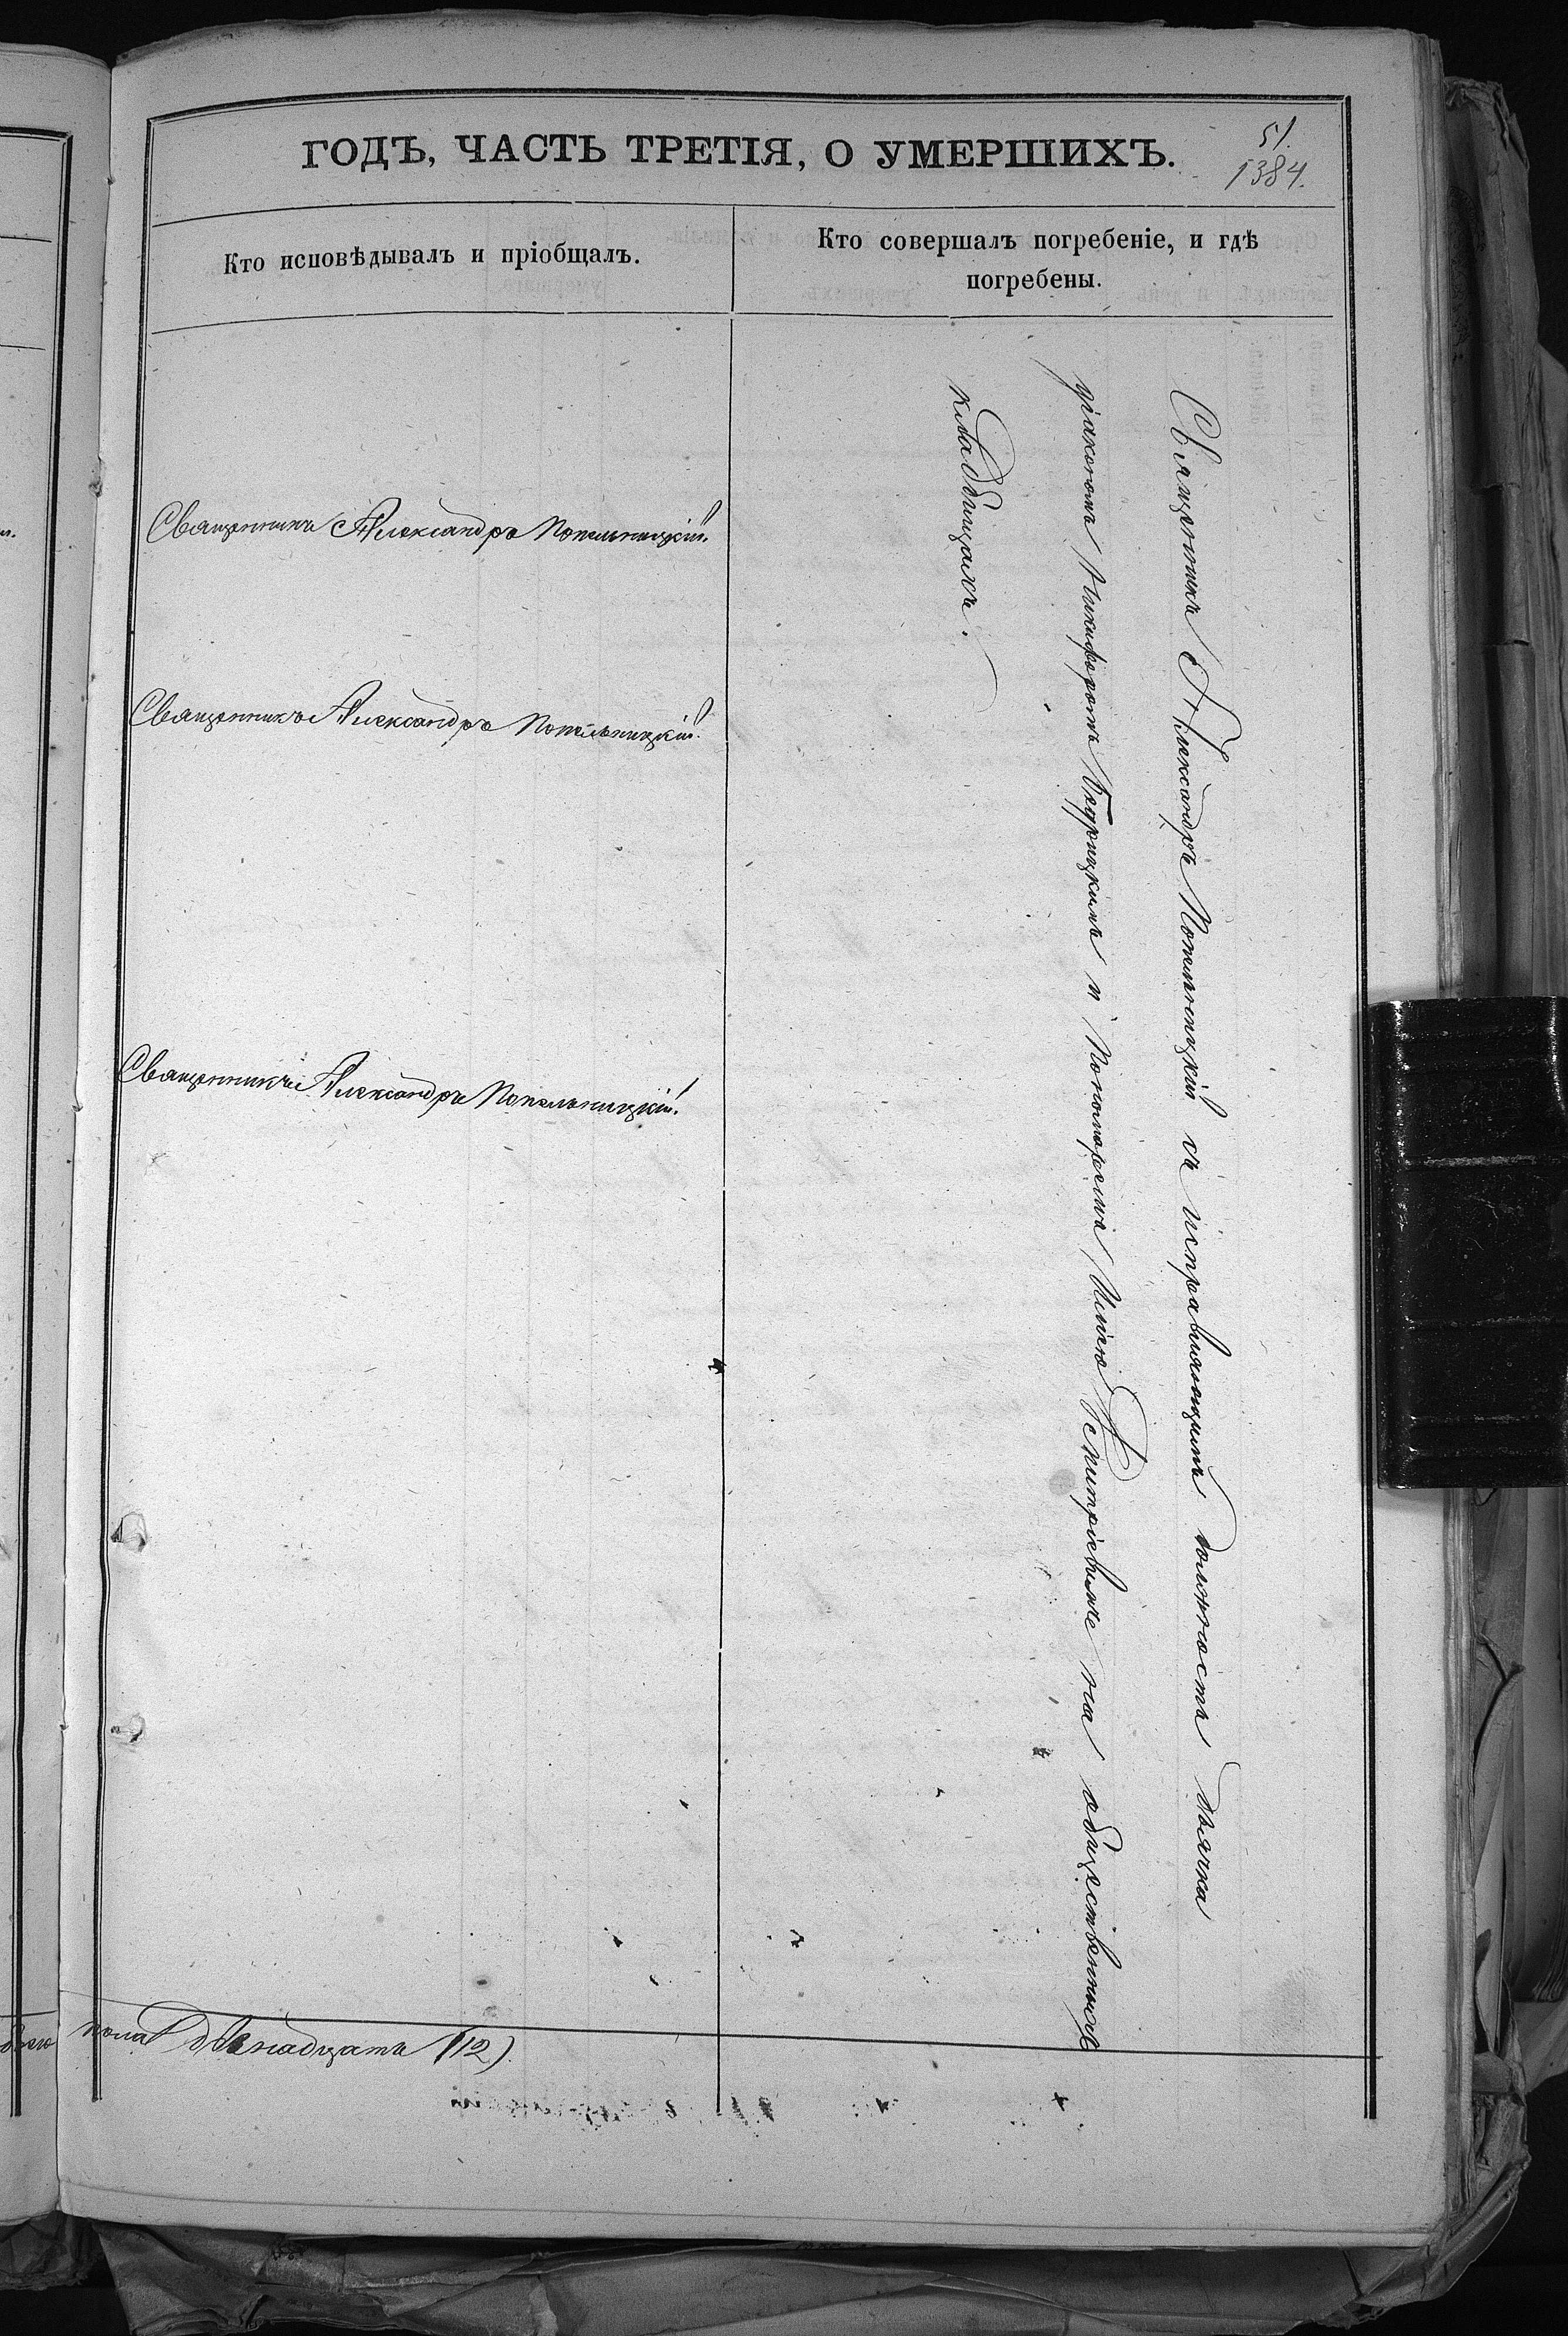 ГОДЪ, ЧАСТЬ ТРЕТІЯ, О УМЕРШИХЪ.
51.
1384.
Кто исповѣдывалъ и пріобщалъ.
Кто совершалъ погребеніе, и гдѣ
погребены.
Священникъ Александръ Попельницкій.
Священникъ Александръ Попельницкій.
Священникъ Александръ Попельницкій.
Священникъ Александръ Попельницкій съ исправляющимъ должность дьячка
діакономъ Никифоромъ и Пономаремъ Димитріевымъ на общественномъ
кладбищахъ.
пола двѣнадцать (12).